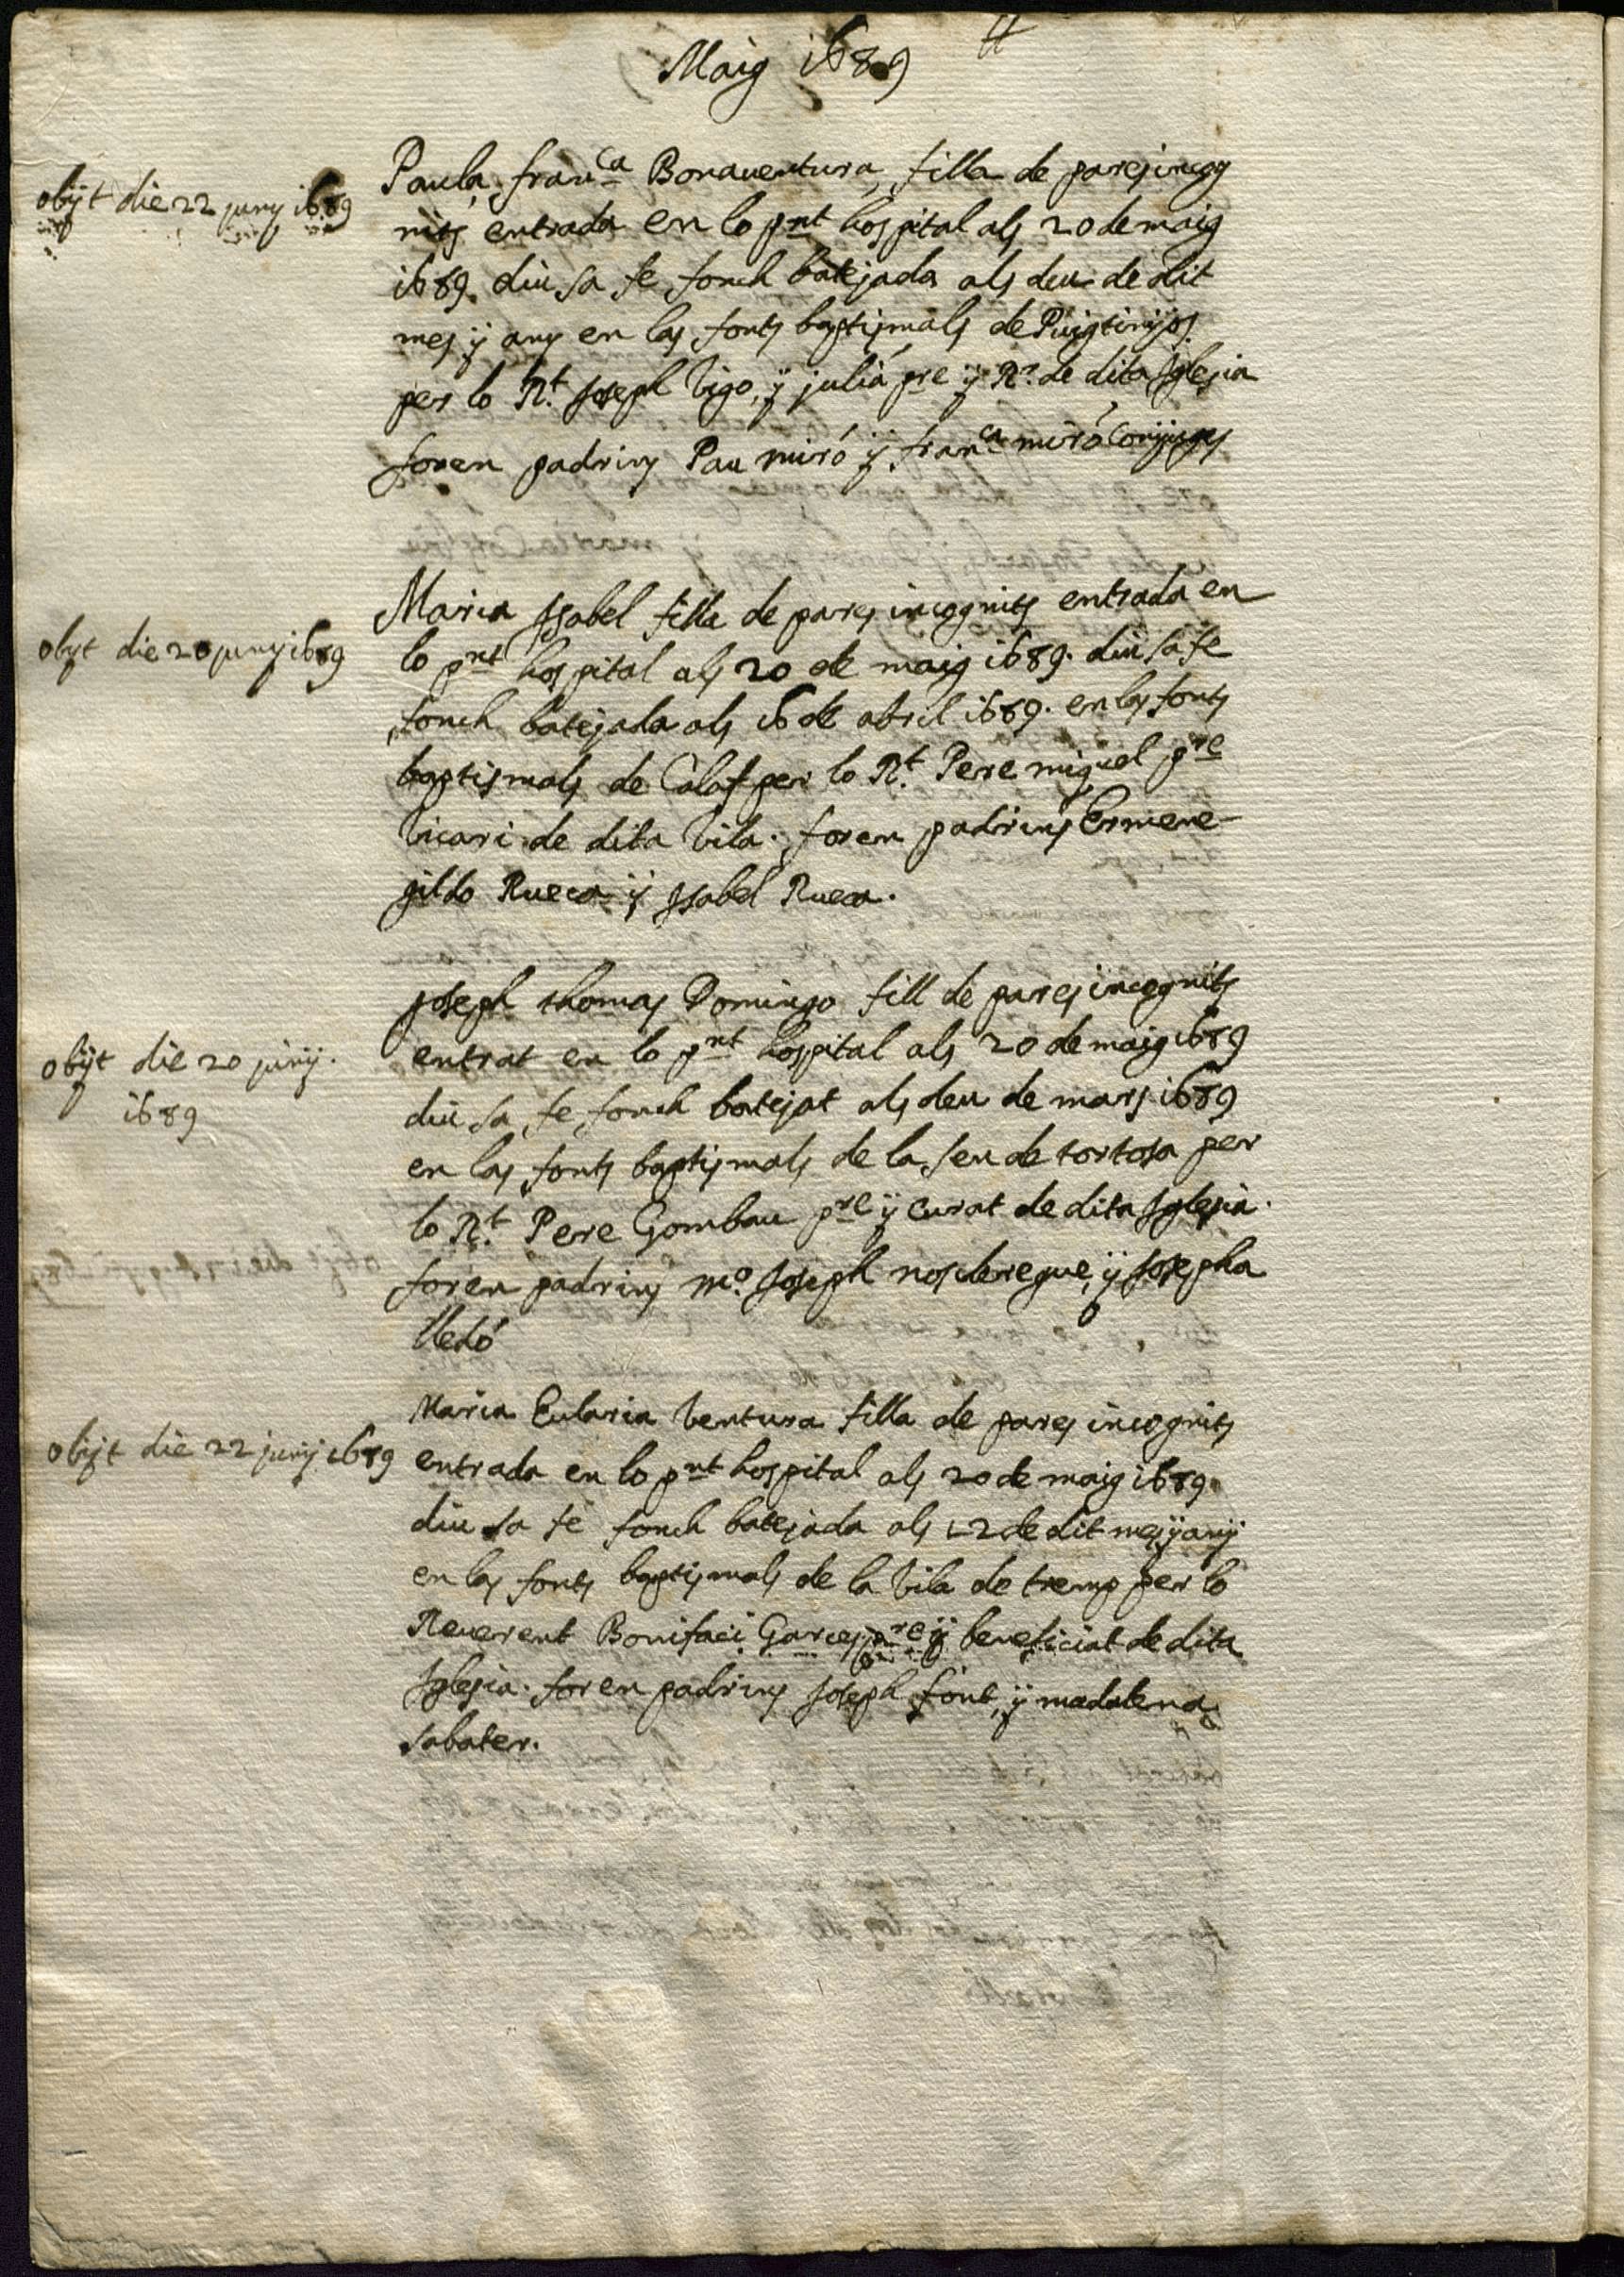 Maig 1689
obijt die 22 juny 1689
Paula, franca Bonauentura, filla de pares incog
nits entrada en lo pnt hospital als 20 de maig
1689. diu sa fe fonch batejada als deu de dit
mes y any en las fonts baptismals de Puigtinyos
per lo Rt. Joseph Vigo, y julià pre y Rr. de dita Iglesia
foren padrins Pau miró y franca miró Conjuges
obyt die 20 juny 1689
Maria Isabel filla de pares incognits entrada en
lo pnt hospital als 20 de maig 1689. diu sa fe
fonch batejada als 16 de abril 1689. en las fonts
baptismals de Calaf per lo Rt. Pere miquel pre
Vicari de dita Vila. foren padrins Ermene-
gildo Rueca y Isabel Rueca.
obijt die 20 junij.
1689
Joseph thomas Domingo fill de pares incognits
entrat en lo pnt hospital als 20 de maig 1689
diu sa fe fonch batejat als deu de mars 1689
en las fonts baptismals de la seu de tortosa per
lo Rt. Pere Gombau pre y curat de dita Iglesia.
foren padrins mo. Joseph y Josepha
lledó
obijt die 22 junij 1689
Maria Eularia Ventura filla de pares incognits
entrada en lo pnt hospital als 20 de maig 1689
diu sa fe fonch batejada als 12 de dit mes y any
en las fonts baptismals de la Vila de tremp per lo
Reuerent Bonifaci Garces pre y beneficiat de dita
Iglesia. foren padrins Joseph font, y madalena
sabater.